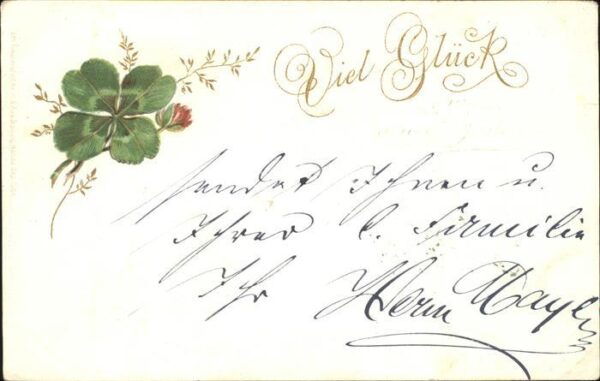 Viel Glück
sendet Ihnen u.
Ihrer l. Familie
Ihr Herm